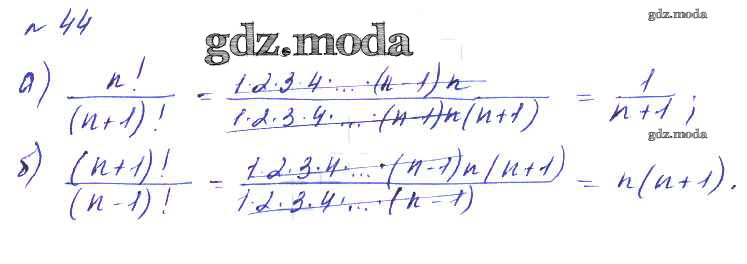 № 44
gdz.moda
gdz.moda
а) n! / (n+1)! = 1·2·3·4·...·(n-1)n / 1·2·3·4·...·(n-1)n(n+1) = 1 / n+1 ;
gdz.moda
б) (n+1)! / (n-1)! = 1·2·3·4·...·(n-1)n(n+1) / 1·2·3·4·...·(n-1) = n(n+1).